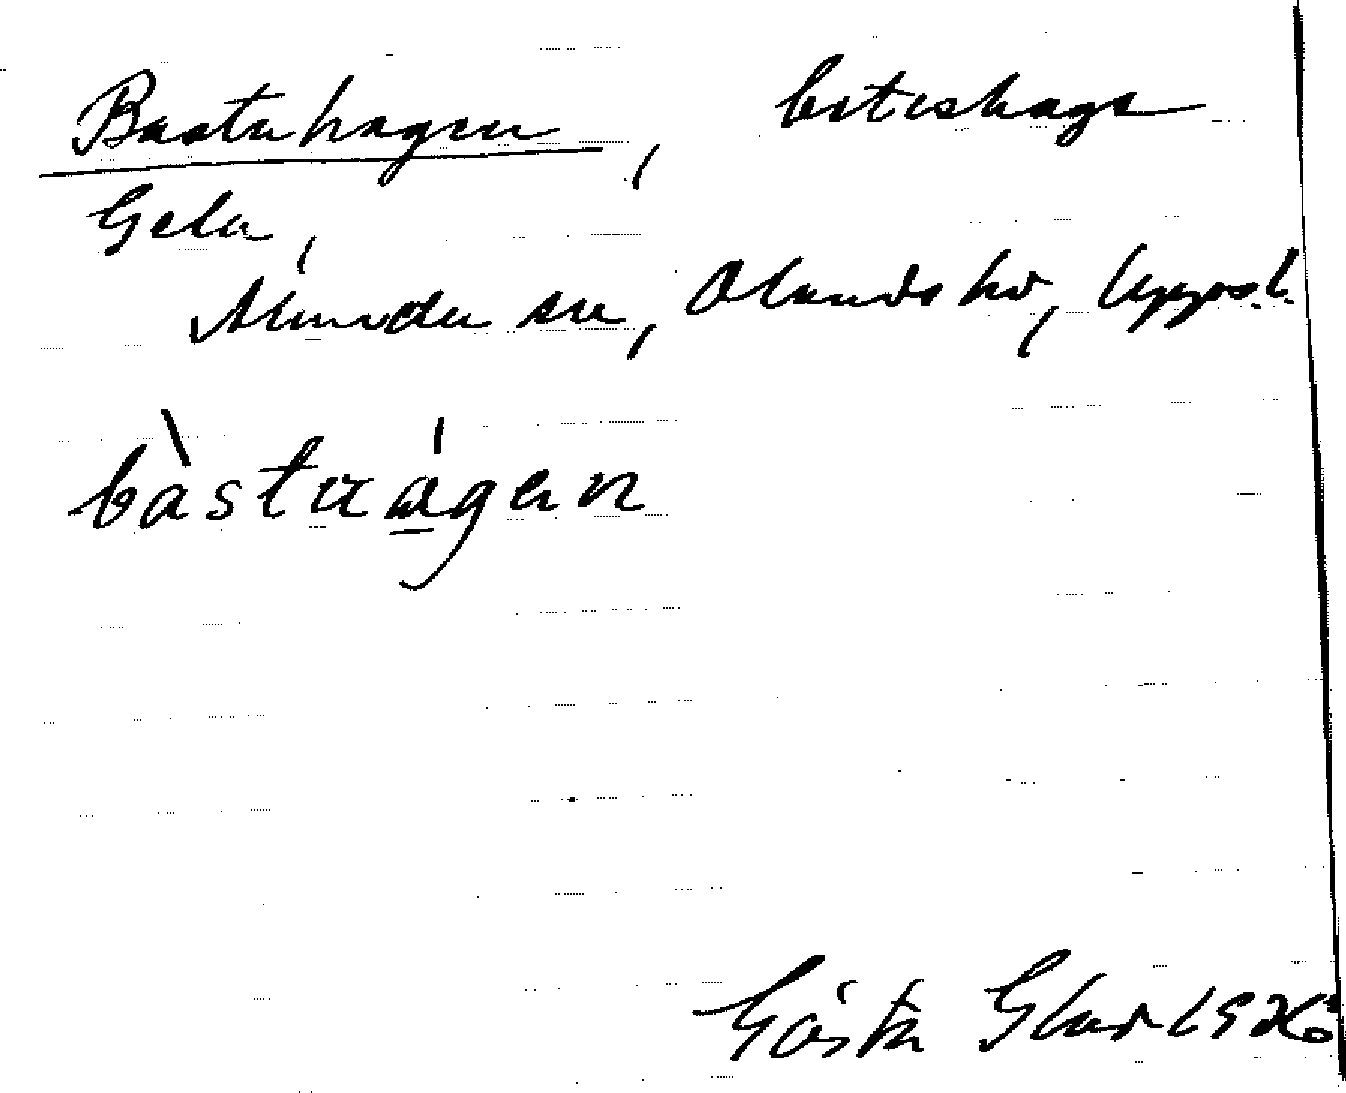 Bastuhagen, beteshage
Gela,
Alunda sn, Olands hd, Upps.l.
bàstuágen
Gösta Glad 1926